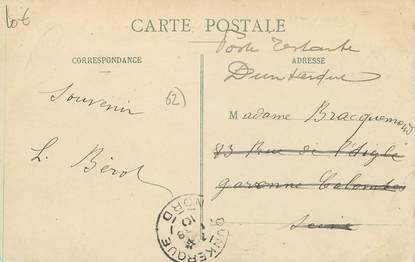 Lot
CARTE POSTALE
CORRESPONDANCE
ADRESSE
Poste restante
Dunkerque
Souvenir
62
L. Bérot
Madame Bracquemond
83 Rue de l'Aigle
garenne Colombes
Seine
DUNKERQUE
NORD